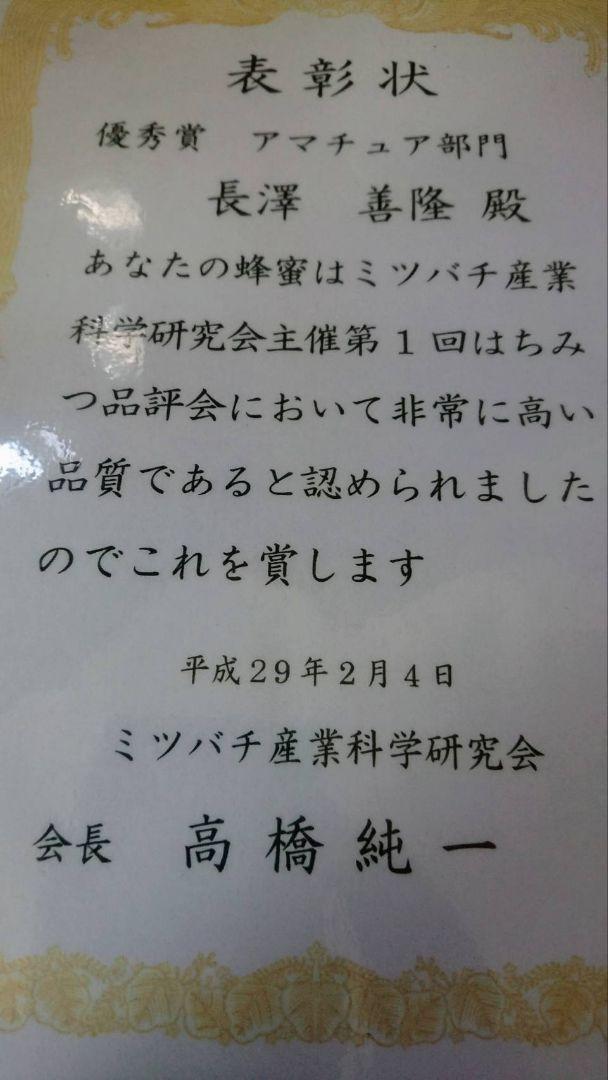 表彰状
優秀賞 アマチュア部門
長澤 善隆 殿
あなたの蜂蜜はミツバチ産業
科学研究会主催第1回はちみ
つ品評会において非常に高い
品質であると認められました
のでこれを賞します
平成29年2月4日
ミツバチ産業科学研究会
会長 高橋純一